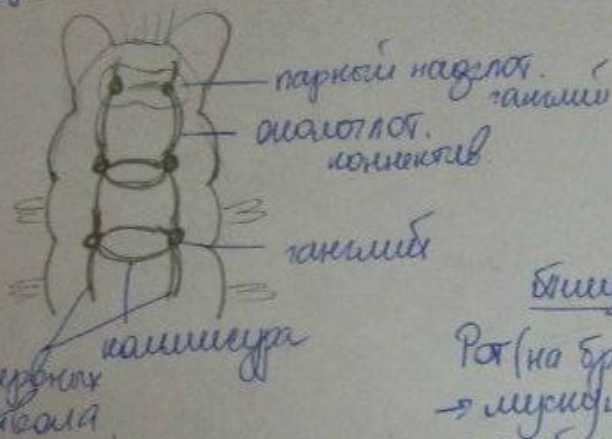 парный надглот.
ганглий
окологлот.
коннектив
ганглий
комиссура
нервных
ствола
Рот (на бр
→ муску